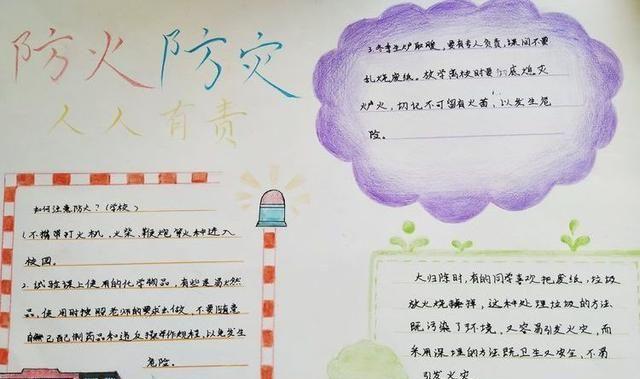 防火防灾
人人有责
如何注意防火?(学校)
1.不携带打火机,火柴,鞭炮等火种进入
校园。
2.试验课上使用的化学物品,有些是易燃
品,使用时按照老师的要求去做,不要随意
自己配制药品和违反操作规程,以免发生
危险。
3.冬季生炉取暖,要有专人负责,课间不要
乱烧废纸。放学离校时要彻底熄灭
炉火,切记不可留有火苗,以发生危
险。
大扫除时,有的同学喜欢把废纸,垃圾
放火烧掉,这种处理垃圾的方法
既污染了环境,又容易引发火灾,而
采用深埋的方法既卫生又安全,不易
引发火灾